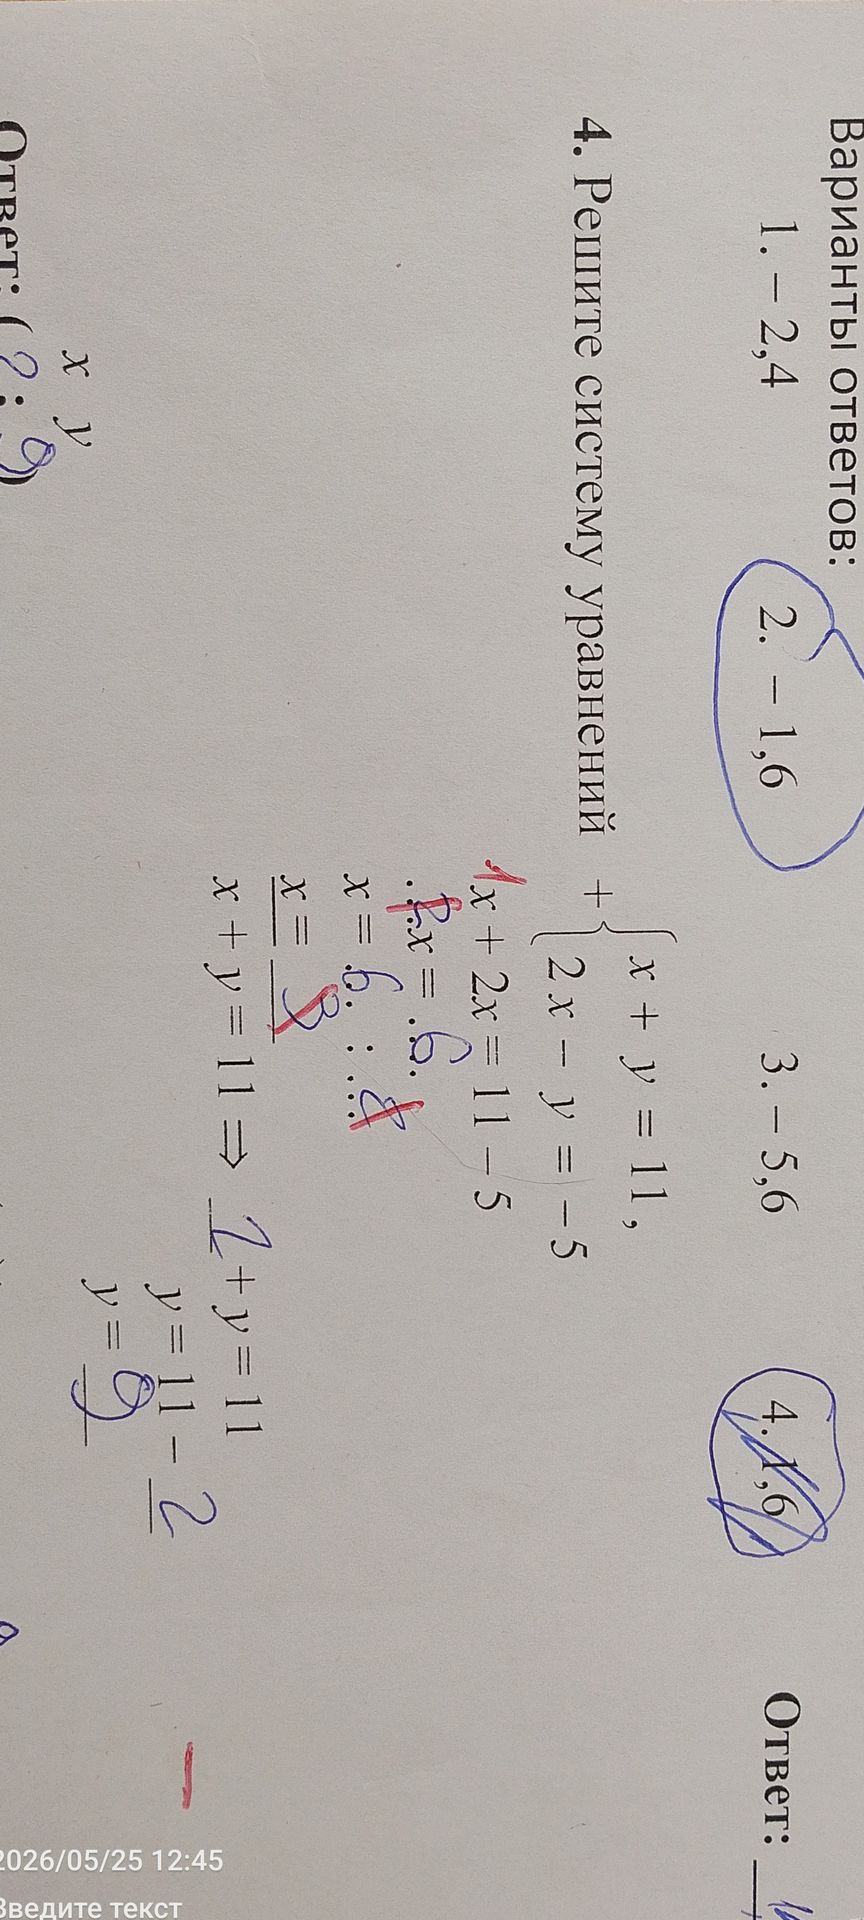 Варианты ответов:
1. – 2,4 2. – 1,6 3. – 5,6 4. 1,6 Ответ:
4. Решите систему уравнений + { x + y = 11,
2x – y = –5
1x + 2x = 11 – 5
2x = 6
x = 6 : 2
x = 3
x + y = 11 ⇒ 2 + y = 11
y = 11 – 2
y = 9
x y
Ответ: (2 ; 9)
2026/05/25 12:45
Введите текст